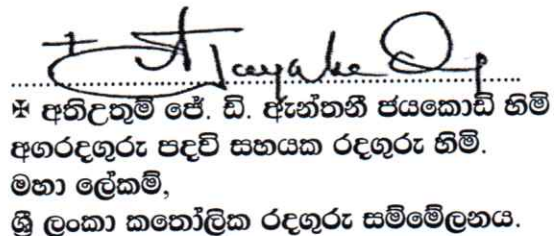 ✠ අතිඋතුම් ජේ. ඩි. ඇන්තනී ජයකොඩි හිමි
අගරදගුරු පදවි සහයක රදගුරු හිමි.
මහා ලේකම්,
ශ්‍රී ලංකා කතෝලික රදගුරු සම්මේලනය.